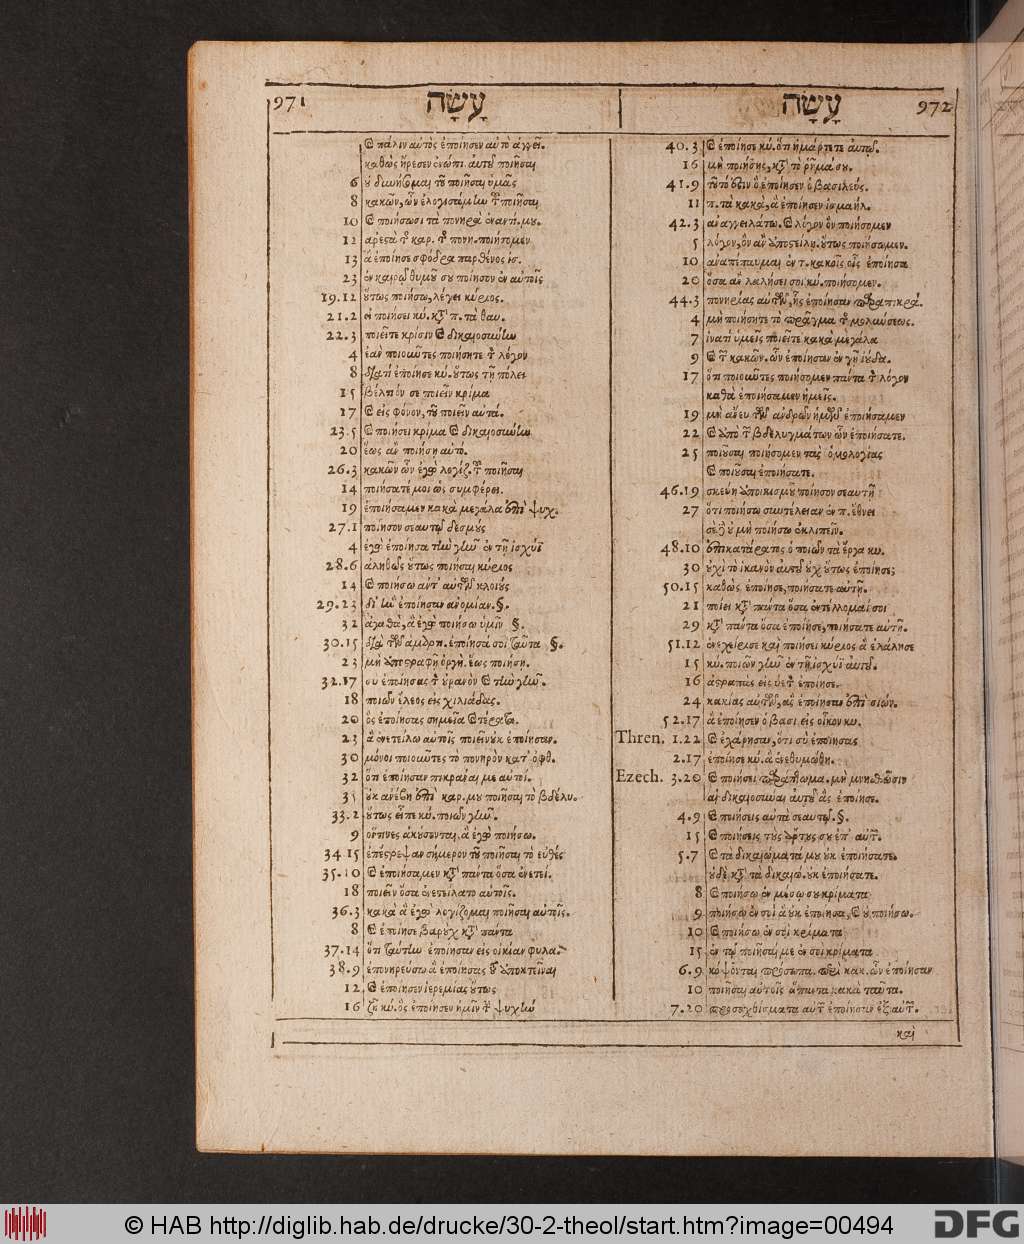 971 עָשָׂה
καὶ πάλιν αὐτὸς ἐποίησεν αὐτὸ ἀγγεῖ.
καθὼς ἤρεσεν ἐνώπι. αὐτοῦ ποιῆσαι
6 οὐ δυνήσομαι τοῦ ποιῆσαι ὑμᾶς
8 κακῶν, ὧν ἐλογισάμην τοῦ ποιῆσαι
10 καὶ ποιήσωσι τὰ πονηρὰ ἐναντί. μου.
12 ἀρεστὰ τῆς καρ. τῆς πονη. ποιήσομεν
13 ἃ ἐποίησε σφόδρα παρθένος ἰσ.
23 ἐν καιρῷ θυμοῦ σου ποίησον ἐν αὐτοῖς
19.12 οὕτως ποιήσω, λέγει κύριος.
21.2 εἰ ποιήσει κύ. κτ π. τὰ θαυ.
22.3 ποιεῖτε κρίσιν καὶ δικαιοσύνην
4 ἐὰν ποιοῦντες ποιήσητε τὸν λόγον
8 διατί ἐποίησε κύ. οὕτως τῇ πόλει
15 βέλτιον σε ποιεῖν κρίμα
17 καὶ εἰς φόνον, τοῦ ποιεῖν αὐτά.
23.5 καὶ ποιήσει κρίμα καὶ δικαιοσύνην
20 ἕως ἂν ποιήσῃ αὐτὸ.
26.3 κακῶν ὧν ἐγὼ λογίζ. τοῦ ποιῆσαι
14 ποιήσατέ μοι ὡς συμφέρει.
19 ἐποιήσαμεν κακὰ μεγάλα ἐπὶ ψυχ.
27.1 ποίησον σεαυτῷ δεσμούς
4 ἐγὼ ἐποίησα τὴν γῆν ἐν τῇ ἰσχύϊ
28.6 ἀληθῶς οὕτως ποιῆσαι κύριος
14 καὶ ποιήσω ἀντ' αὐτῶν κλοιούς
29.23 δι' ἣν ἐποίησαν ἀνομίαν. §.
32 ἀγαθὰ, ἃ ἐγὼ ποιήσω ὑμῖν §.
30.15 διὰ τῶν ἁμδρη. ἐποίησά σοι ταῦτα §.
23 μὴ ὑποστραφῇ ὀργὴ. ἕως ποιήσῃ.
32.17 συ ἐποίησας τὸν οὐρανὸν καὶ τὴν γῆν.
18 ποιῶν ἔλεος εἰς χιλιάδας.
20 ὃς ἐποίησας σημεῖα καὶ τέρατα.
23 ἃ ἐνετείλω αὐτοῖς ποιεῖν οὐκ ἐποίησαν.
30 μόνοι ποιοῦντες τὸ πονηρὸν κατ' ὀφθ.
32 ὅτι ἐποίησαν πικρᾶναι με αὐτοί.
35 οὐκ ἀνέβη ἐπὶ καρ. μου ποιῆσαι τὸ βδέλυ.
33.2 οὕτως εἶπε κύ. ποιῶν γῆν.
9 οἵτινες ἀκούσονται. ἃ ἐγὼ ποιήσω.
34.15 ἐπέστρεψαν σήμερον τοῦ ποιῆσαι τὸ εὐθές
35.10 καὶ ἐποιήσαμεν κτ πάντα ὅσα ἐνετεί.
18 ποιεῖν ὅσα ἐνετείλατο αὐτοῖς.
36.3 κακὰ ἃ ἐγὼ λογίζομαι ποιῆσαι αὐτοῖς.
8 καὶ ἐποίησε βαρουχ κτ πάντα
37.14 ὅτι ταύτην ἐποίησαν εἰς οἰκίαν φυλα.
38.9 ἐπονηρεύσω ἃ ἐποίησας τοῦ ἀποκτεῖναι
12 καὶ ἐποίησεν ἱερεμίας οὕτως
16 ζῇ κύ. ὃς ἐποίησεν ἡμῖν τὴν ψυχὴν
עָשָׂה 972
40.3 καὶ ἐποίησε κύ. ὅτι ἡμάρτετε αὐτῷ.
16 μὴ ποιήσῃς, κτ τὸ ῥῆμα
41.9 τοῦτό ἐστιν ὃ ἐποίησεν ὁ βασιλεύς.
11 π. τὰ κακά, ἃ ἐποίησεν ἰσμαήλ.
42.3 ἀναγγειλάτω. καὶ λόγον ὃν ποιήσομεν
5 λόγον, ὃν ἂν ἀποστείλῃ. οὕτως ποιήσωμεν.
10 ἀναπέπαυμαι ἐν τ. κακοῖς οἷς ἐποίησα
20 ὅσα ἂν λαλήσει σοι κύ. ποιήσομεν.
44.3 πονηρίας αὐτῶν, ἧς ἐποίησαν παραπικρά.
4 μὴ ποιήσητε τὸ πρᾶγμα τῆς μολύνσεως.
7 ἱνατί ὑμεῖς ποιεῖτε κακὰ μεγάλα
9 καὶ τῶν κακῶν. ὧν ἐποίησαν ἐν γῇ ἰούδα.
17 ὅτι ποιοῦντες ποιήσομεν πάντα τὸν λόγον
καθὰ ἐποιήσαμεν ἡμεῖς.
19 μὴ ἄνευ τῶν ἀνδρῶν ἡμῶν ἐποιήσαμεν
22 καὶ ἀπὸ τῶν βδελυγμάτων ὧν ἐποιήσατε.
25 ποιοῦσαι ποιήσομεν τὰς ὁμολογίας
καὶ ποιοῦσαι ἐποιήσατε.
46.19 σκεύη ἀποικισμοῦ ποίησον σεαυτῇ
27 ὅτι ποιήσω συντέλειαν ἐν π. ἔθνει
σὲ δὲ οὐ μὴ ποιήσω ἐκλιπεῖν.
48.10 ἐπικατάρατος ὁ ποιῶν τὰ ἔργα κυ.
30 οὐχὶ τὸ ἱκανὸν αὐτοῦ οὐχ οὕτως ἐποίησε;
50.15 καθὼς ἐποίησε, ποιήσατε αὐτῇ.
21 ποίει κτ πάντα ὅσα ἐντέλλομαί σοι
29 κτ πάντα ὅσα ἐποίησε, ποιήσατε αὐτῇ.
51.12 ἐνεχείρισε καὶ ποιήσει κύριος ἃ ἐλάλησε
15 κύ. ποιῶν γῆν ἐν τῇ ἰσχύϊ αὐτοῦ.
16 ἀστραπὰς εἰς ὑετὸν ἐποίησε.
24 κακίας αὐτῶν, ἃς ἐποίησαν ἐπὶ σιών.
52.17 ἃ ἐποίησεν ὁ βασι. εἰς οἶκον κυ.
Thren. 1.22 καὶ ἐχάρησαν, ὅτι σὺ ἐποίησας
2.17 ἐποίησε κύ. ἃ ἐνεθυμώθη.
Ezech. 3.20 καὶ ποιήσει παράπτωμα. μὴ μνησθῶσιν
αἱ δικαιοσύναι αὐτοῦ ἃς ἐποίησε.
4.9 καὶ ποιήσεις αὐτὰ σεαυτῷ. §.
15 καὶ ποιήσεις τοὺς ἄρτους σου ἐπ' αὐτῶν.
5.7 καὶ τὰ δικαιώματά μου οὐκ ἐποιήσατε.
οὐδὲ κτ τὰ δικαιώ. οὐκ ἐποιήσατε.
8 καὶ ποιήσω ἐν μέσῳ σου κρίματα
9 ποιήσω ἐν σοὶ ἃ οὐκ ἐποίησα, καὶ οὐ ποιήσω.
10 καὶ ποιήσω ἐν σοὶ κρίματα
15 ἐν τῷ ποιῆσαι με ἐν σοὶ κρίματα
6.9 κόψονται πρόσωπα. περὶ κακ. ὧν ἐποίησαν
10 ποιῆσαι αὐτοῖς ἅπαντα κακὰ ταῦτα.
7.20 προσοχθίσματα αὐτῶν ἐποίησαν ἐξ αὐτῶν.
καὶ
© HAB http://diglib.hab.de/drucke/30-2-theol/start.htm?image=00494
DFG